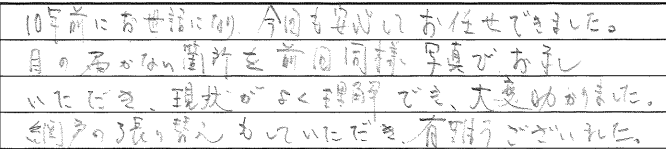 10年前にお世話になり 今回も安心してお任せできました。
目の届かない箇所を前回同様、写真でお示し
いただき、現状がよく理解でき、大変助かりました。
網戸の張り替えもしていただき、有難うございました。